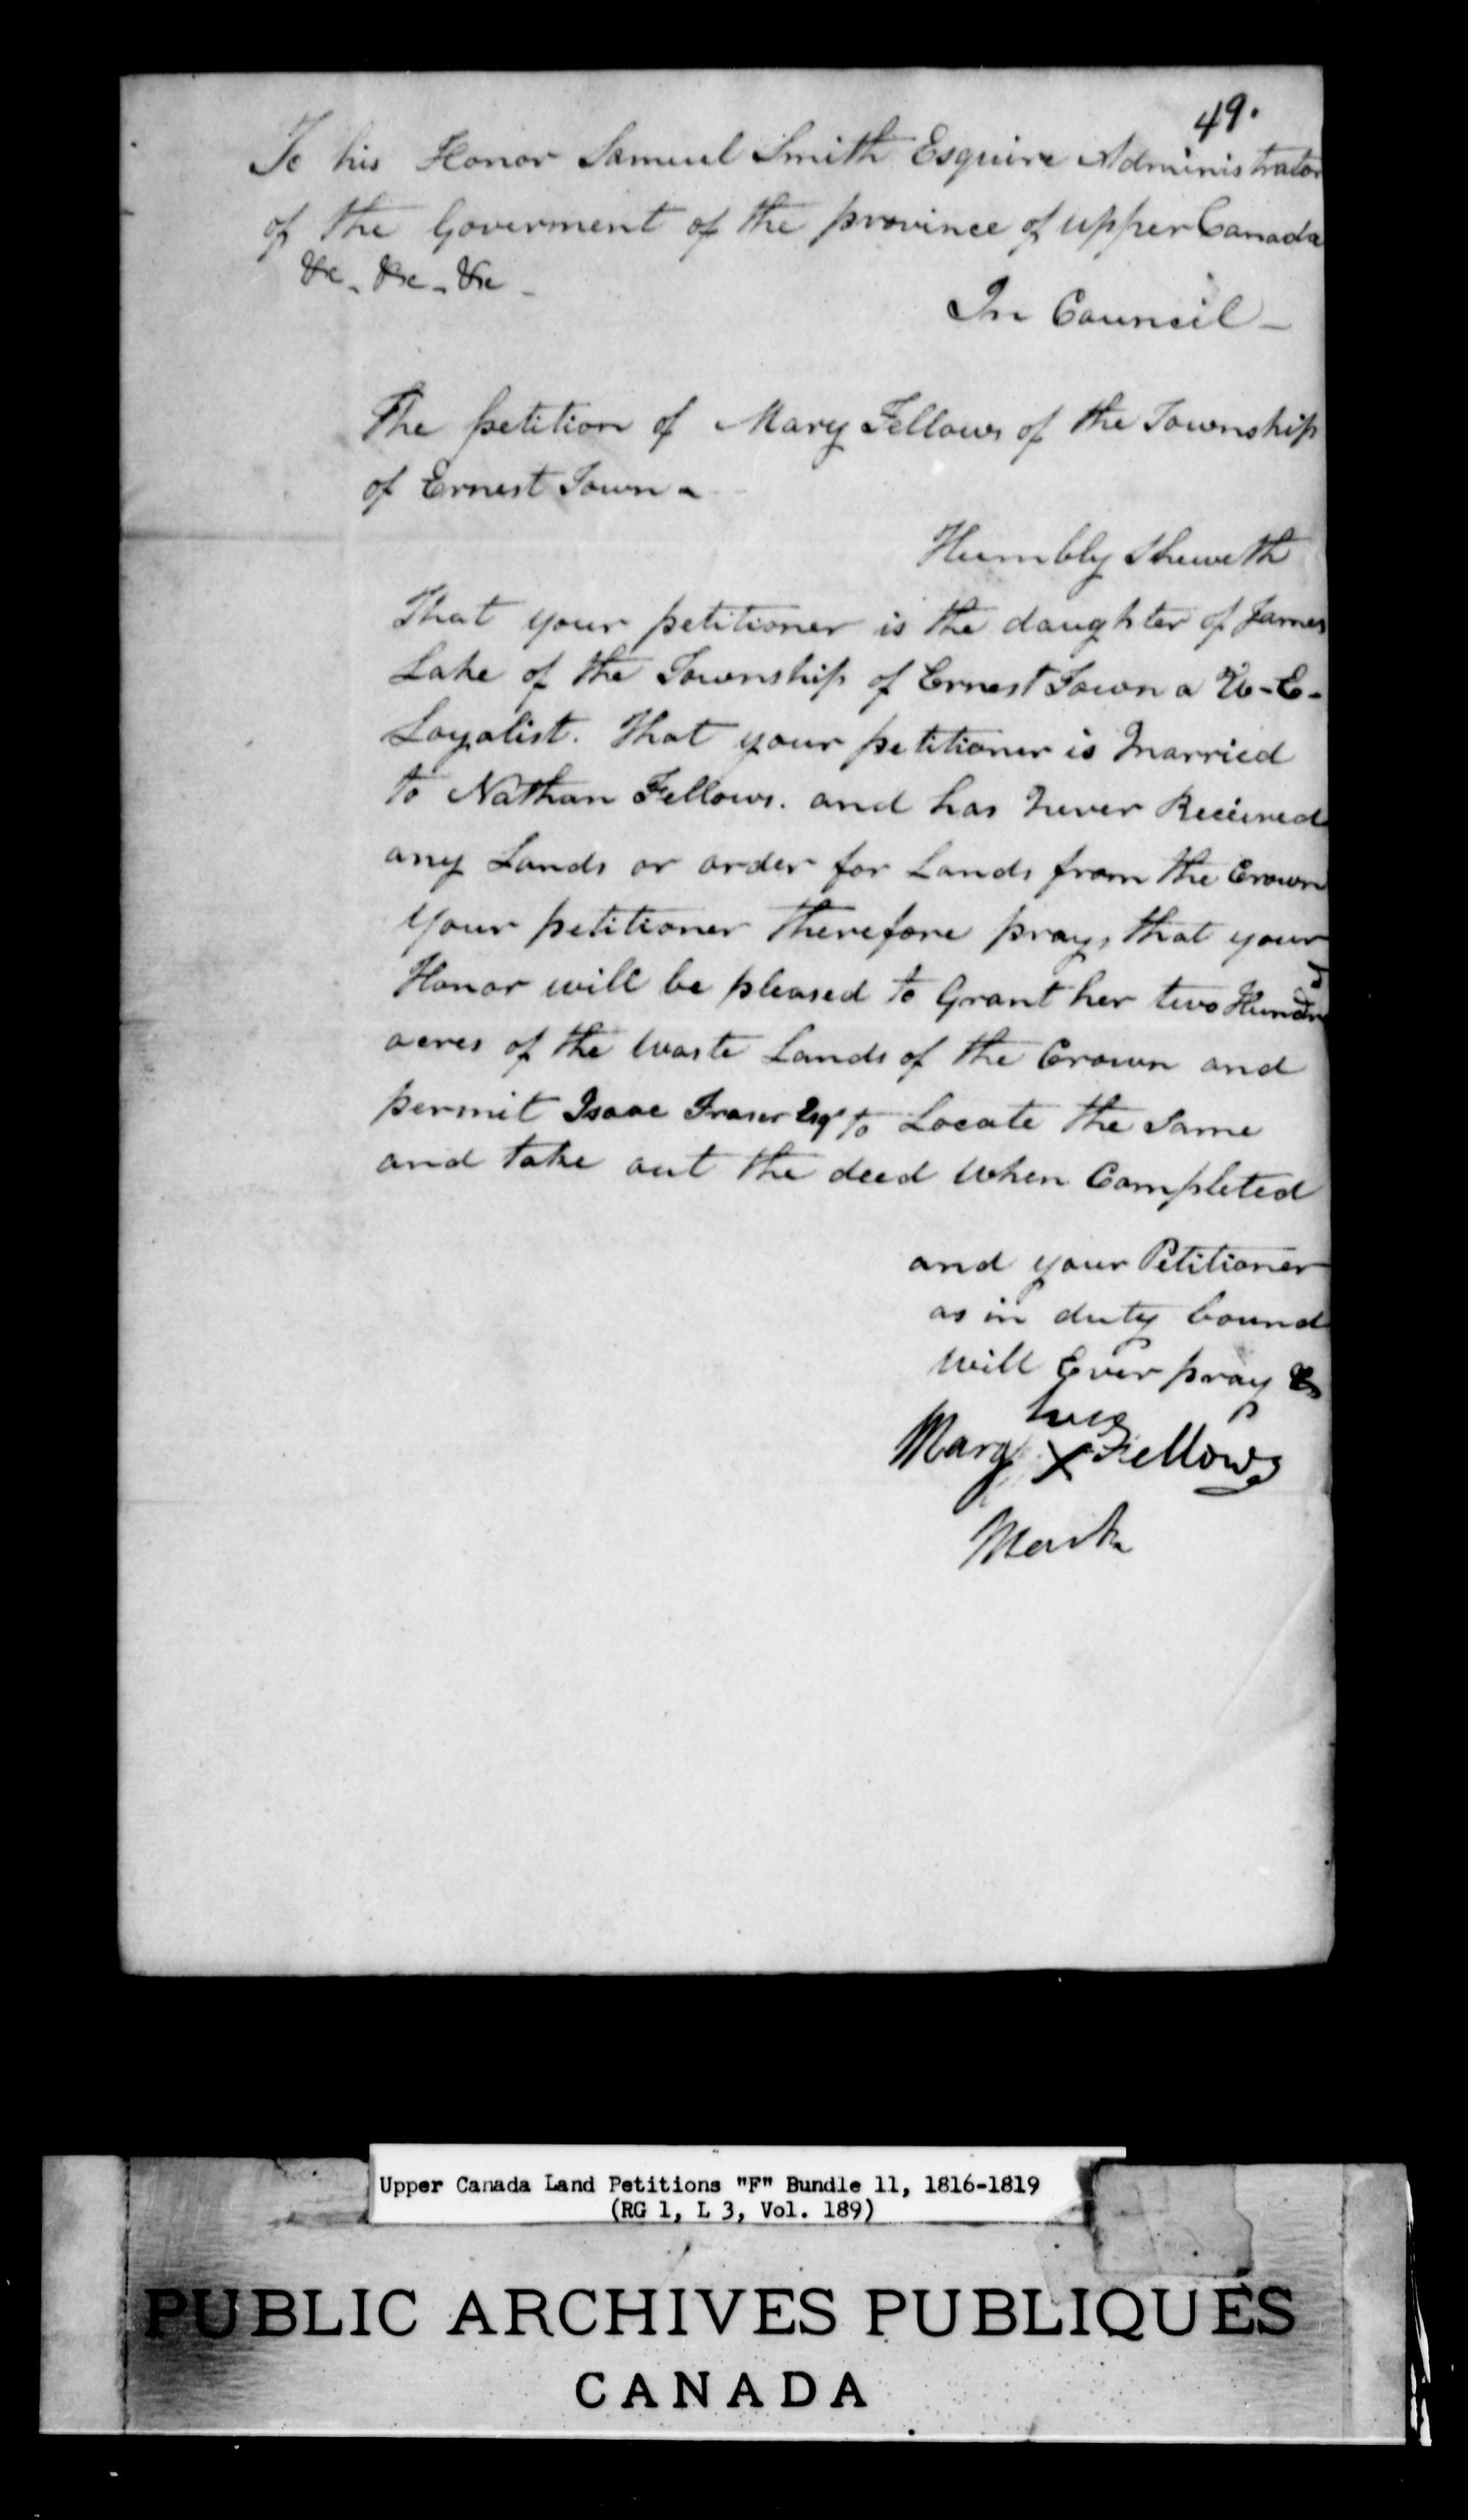 49.
To his Honor Samuel Smith Esquire Administrator
of the Goverment of the province of upper Canada
&c - &c - &c -
In Council -
The petition of Mary Fellows of the Township
of Ernest Town -
Humbly Sheweth
That your petitioner is the daughter of James
Lake of the Township of Ernest Town a U-E-
Loyalist. That your petitioner is Married
to Nathan Fellows. and has Never Received
any Lands or order for Lands from the Crown
Your petitioner therefore prays that your
Honor will be pleased to Grant her two Hundrd
acres of the Waste Lands of the Crown and
permit Isaac Fraser Esqr to Locate the Same
and take out the deed When Completed
and your Petitioner
as in duty bound
Will Ever pray &
her
Mary X Fellows
Mark
Upper Canada Land Petitions "F" Bundle 11, 1816-1819
(RG 1, L 3, Vol. 189)
PUBLIC ARCHIVES PUBLIQUES
CANADA